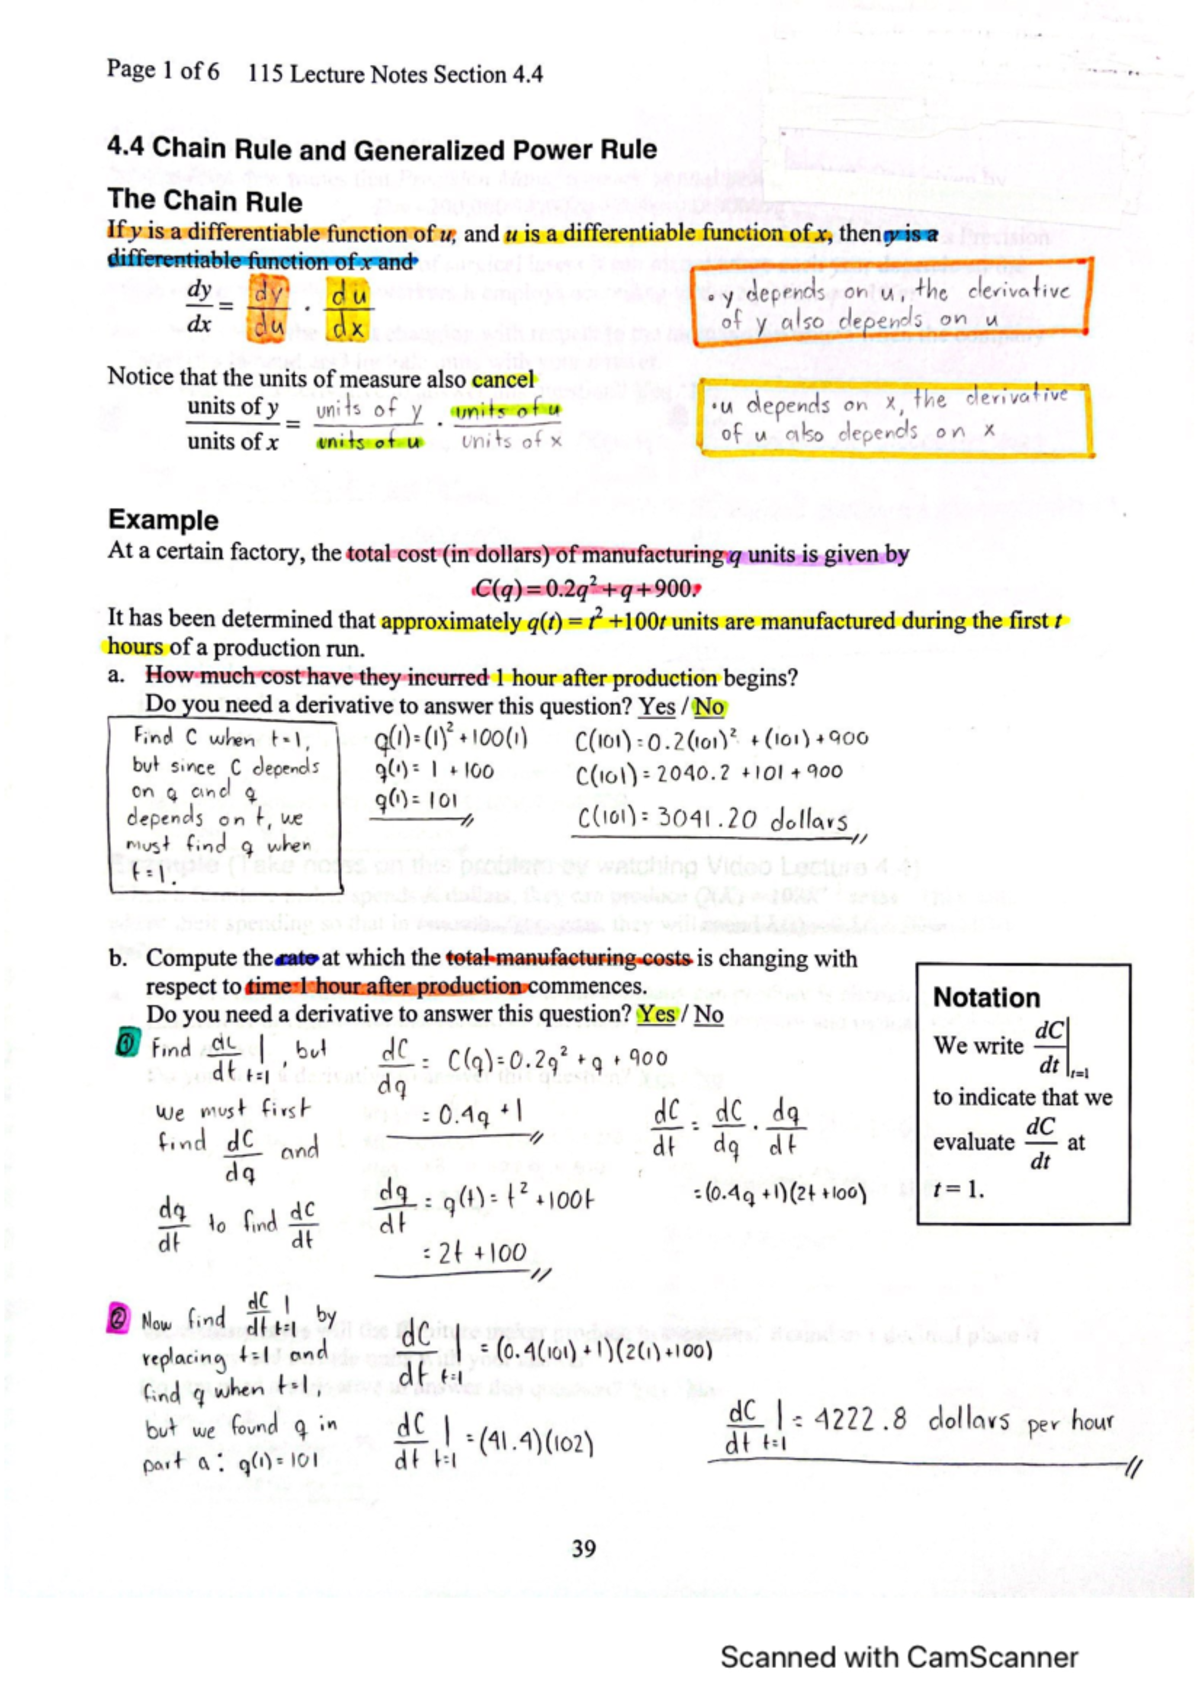 Page 1 of 6 115 Lecture Notes Section 4.4
4.4 Chain Rule and Generalized Power Rule
The Chain Rule
If y is a differentiable function of u, and u is a differentiable function of x, then y is a
differentiable function of x and
dy/dx = dy/du · du/dx
• y depends on u, the derivative
of y also depends on u
Notice that the units of measure also cancel
units of y/units of x = units of y/units of u · units of u/units of x
• u depends on x, the derivative
of u also depends on x
Example
At a certain factory, the total cost (in dollars) of manufacturing q units is given by
C(q) = 0.2q² + q + 900.
It has been determined that approximately q(t) = t² + 100t units are manufactured during the first t
hours of a production run.
a. How much cost have they incurred 1 hour after production begins?
Do you need a derivative to answer this question? Yes / No
Find C when t=1,
but since C depends
on q and q
depends on t, we
must find q when
t=1.
q(1)=(1)²+100(1)
q(1)= 1 + 100
q(1)= 101
C(101)=0.2(101)² + (101)+900
C(101)= 2040.2 +101 + 900
C(101)= 3041.20 dollars
b. Compute the rate at which the total manufacturing costs is changing with
respect to time 1 hour after production commences.
Do you need a derivative to answer this question? Yes / No
① Find dC/dt |t=1, but
we must first
find dC/dq and
dq/dt to find dC/dt
dC/dq = C(q)=0.2q² + q + 900
= 0.4q +1
dq/dt = q(t)= t² +100t
= 2t +100
dC/dt = dC/dq · dq/dt
=(0.4q +1)(2t +100)
Notation
We write dC/dt |t=1
to indicate that we
evaluate dC/dt at
t = 1.
② Now find dC/dt |t=1 by
replacing t=1 and
find q when t=1,
but we found q in
part a: q(1)=101
dC/dt |t=1 = (0.4(101)+1)(2(1)+100)
dC/dt |t=1 =(41.4)(102)
dC/dt |t=1 = 4222.8 dollars per hour
39
Scanned with CamScanner